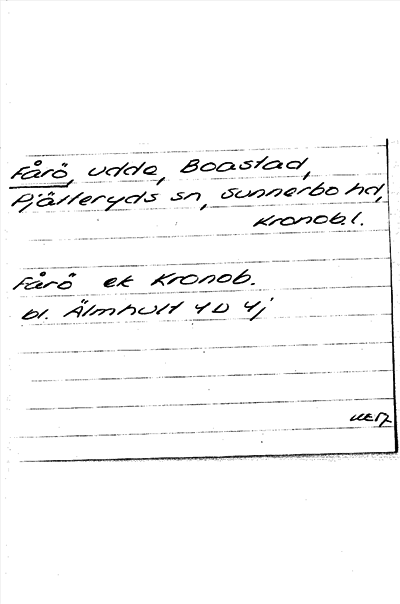 Fårö, udde, Boastad,
Pjätteryds sn, Sunnerbo hd,
Kronob.l.
Fårö ek Kronob.
bl. Älmhult 4D 4j